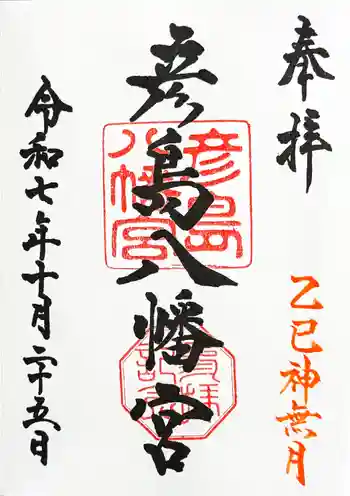 奉拝
乙巳神無月
彦島八幡宮
彦島八幡宮
令和七年十月二十五日